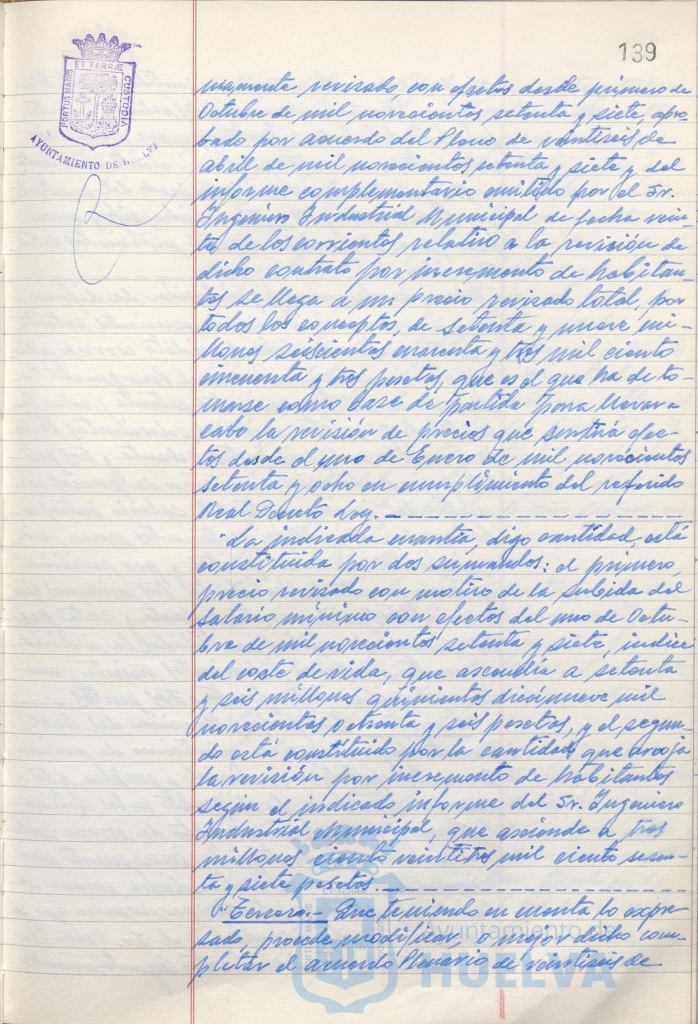 139
PORTUS MARIS ET TERRÆ CUSTODIA
AYUNTAMIENTO DE HUELVA
mamente revisado, con efectos desde primero de
Octubre de mil novecientos setenta y siete, apro-
bado por acuerdo del Pleno de veintiseis de
abril de mil novecientos setenta y siete y del
informe complementario emitido por el Sr.
Ingeniero Industrial Municipal de fecha vein-
te de los corrientes relativo a la revisión de
dicho contrato por incremento de habitan-
tes se llega a un precio revisado total, por
todos los conceptos, de setenta y nueve mi-
llones seiscientas cuarenta y tres mil ciento
cincuenta y tres pesetas, que es el que ha de to-
marse como base de partida para llevar a
cabo la revisión de precios que surtirá efec-
tos desde el uno de Enero de mil novecientos
setenta y ocho en cumplimiento del referido
Real Decreto Ley.
"La indicada cuantía, digo cantidad, está
constituida por dos sumandos: el primero,
precio revisado con motivo de la subida del
salario mínimo con efectos del uno de Octu-
bre de mil novecientos setenta y siete, indice
del coste de vida, que ascendía a setenta
y seis millones quinientos diecinueve mil
novecientos ochenta y seis pesetas, y el segun-
do está constituido por la cantidad que arroja
la revisión por incremento de habitantes
según el indicado informe del Sr. Ingeniero
Industrial Municipal, que asciende a tres
millones ciento veintitres mil ciento sesen-
ta y siete pesetas.
"Tercero.- Que teniendo en cuenta lo expre-
sado, procede modificar, o mejor dicho com-
pletar el acuerdo Plenario de veintiseis de
Ayuntamiento de
HUELVA